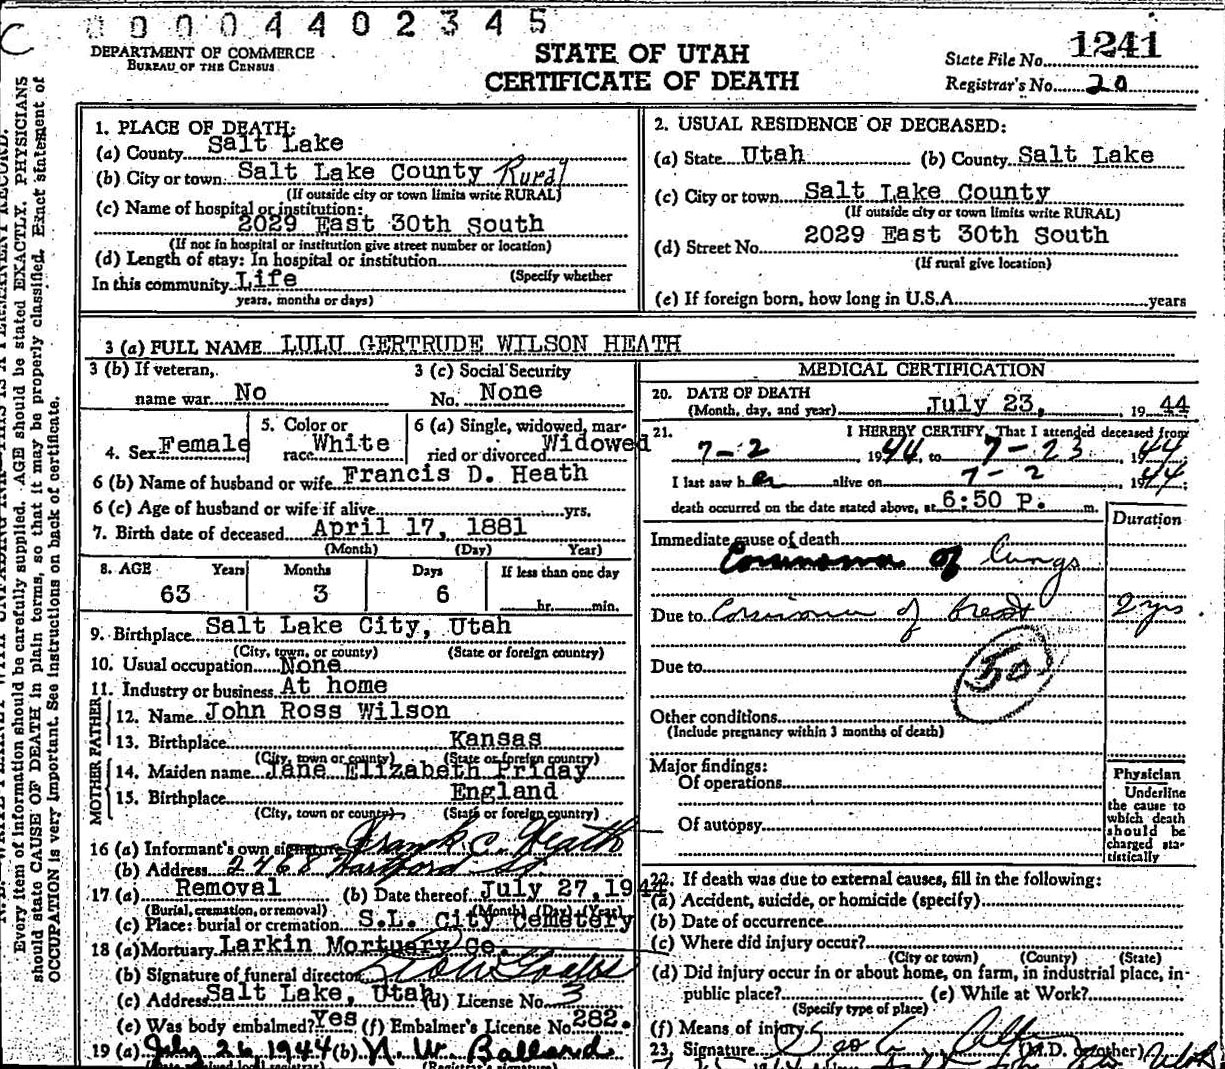 C
0 0 0 0 4 4 0 2 3 4 5
DEPARTMENT OF COMMERCE
BUREAU OF THE CENSUS
STATE OF UTAH
CERTIFICATE OF DEATH
State File No. 1241
Registrar's No. 20
Every item of information should be carefully supplied. AGE should be stated EXACTLY. PHYSICIANS
should state CAUSE OF DEATH in plain terms, so that it may be properly classified. Exact statement of
OCCUPATION is very important. See instructions on back of certificate.
1. PLACE OF DEATH:
(a) County Salt Lake
(b) City or town Salt Lake County Rural
(If outside city or town limits write RURAL)
(c) Name of hospital or institution:
2029 East 30th South
(If not in hospital or institution give street number or location)
(d) Length of stay: In hospital or institution
(Specify whether
In this community Life
years, months or days)
2. USUAL RESIDENCE OF DECEASED:
(a) State Utah (b) County Salt Lake
(c) City or town Salt Lake County
(If outside city or town limits write RURAL)
(d) Street No. 2029 East 30th South
(If rural give location)
(e) If foreign born, how long in U.S.A. years
3 (a) FULL NAME LULU GERTRUDE WILSON HEATH
3 (b) If veteran, name war No
3 (c) Social Security No. None
4. Sex Female
5. Color or race White
6 (a) Single, widowed, married or divorced Widowed
6 (b) Name of husband or wife Francis D. Heath
6 (c) Age of husband or wife if alive yrs.
7. Birth date of deceased April 17, 1881
(Month) (Day) Year)
8. AGE Years Months Days If less than one day
63 3 6 hr. min.
9. Birthplace Salt Lake City, Utah
(City, town, or county) (State or foreign country)
10. Usual occupation None
11. Industry or business At home
FATHER
12. Name John Ross Wilson
13. Birthplace Kansas
(City, town or county) (State or foreign country)
MOTHER
14. Maiden name Jane Elizabeth Friday
15. Birthplace England
(City, town or county) (State or foreign country)
16 (a) Informant's own signature Frank C. Heath
(b) Address 2468 Hartford St.
17 (a) Removal (b) Date thereof July 27, 1944
(Burial, cremation, or removal) (Month) (Day) (Year)
(c) Place: burial or cremation S.L. City Cemetery
18 (a) Mortuary Larkin Mortuary Co.
(b) Signature of funeral director
(c) Address Salt Lake, Utah (d) License No. 3
(e) Was body embalmed? Yes (f) Embalmer's License No. 282.
19 (a) July 26, 1944 (b) N. W. Ballard
MEDICAL CERTIFICATION
20. DATE OF DEATH
(Month, day, and year) July 23, 1944
21. I HEREBY CERTIFY, That I attended deceased from
7-2 1944, to 7-23 1944
I last saw her alive on 7-2, 1944;
death occurred on the date stated above, at 6:50 P. m.
Duration
Immediate cause of death
of Lungs
Due to of breast 2 yrs
Due to
50
Other conditions
(Include pregnancy within 3 months of death)
Major findings:
Of operations
Of autopsy
Physician
Underline
the cause to
which death
should be
charged sta-
tistically
22. If death was due to external causes, fill in the following:
(a) Accident, suicide, or homicide (specify)
(b) Date of occurrence
(c) Where did injury occur?
(City or town) (County) (State)
(d) Did injury occur in or about home, on farm, in industrial place, in-
public place? (e) While at Work?
(Specify type of place)
(f) Means of injury
23. Signature (M.D. or other)